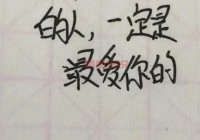 的人，一定是
最爱你的